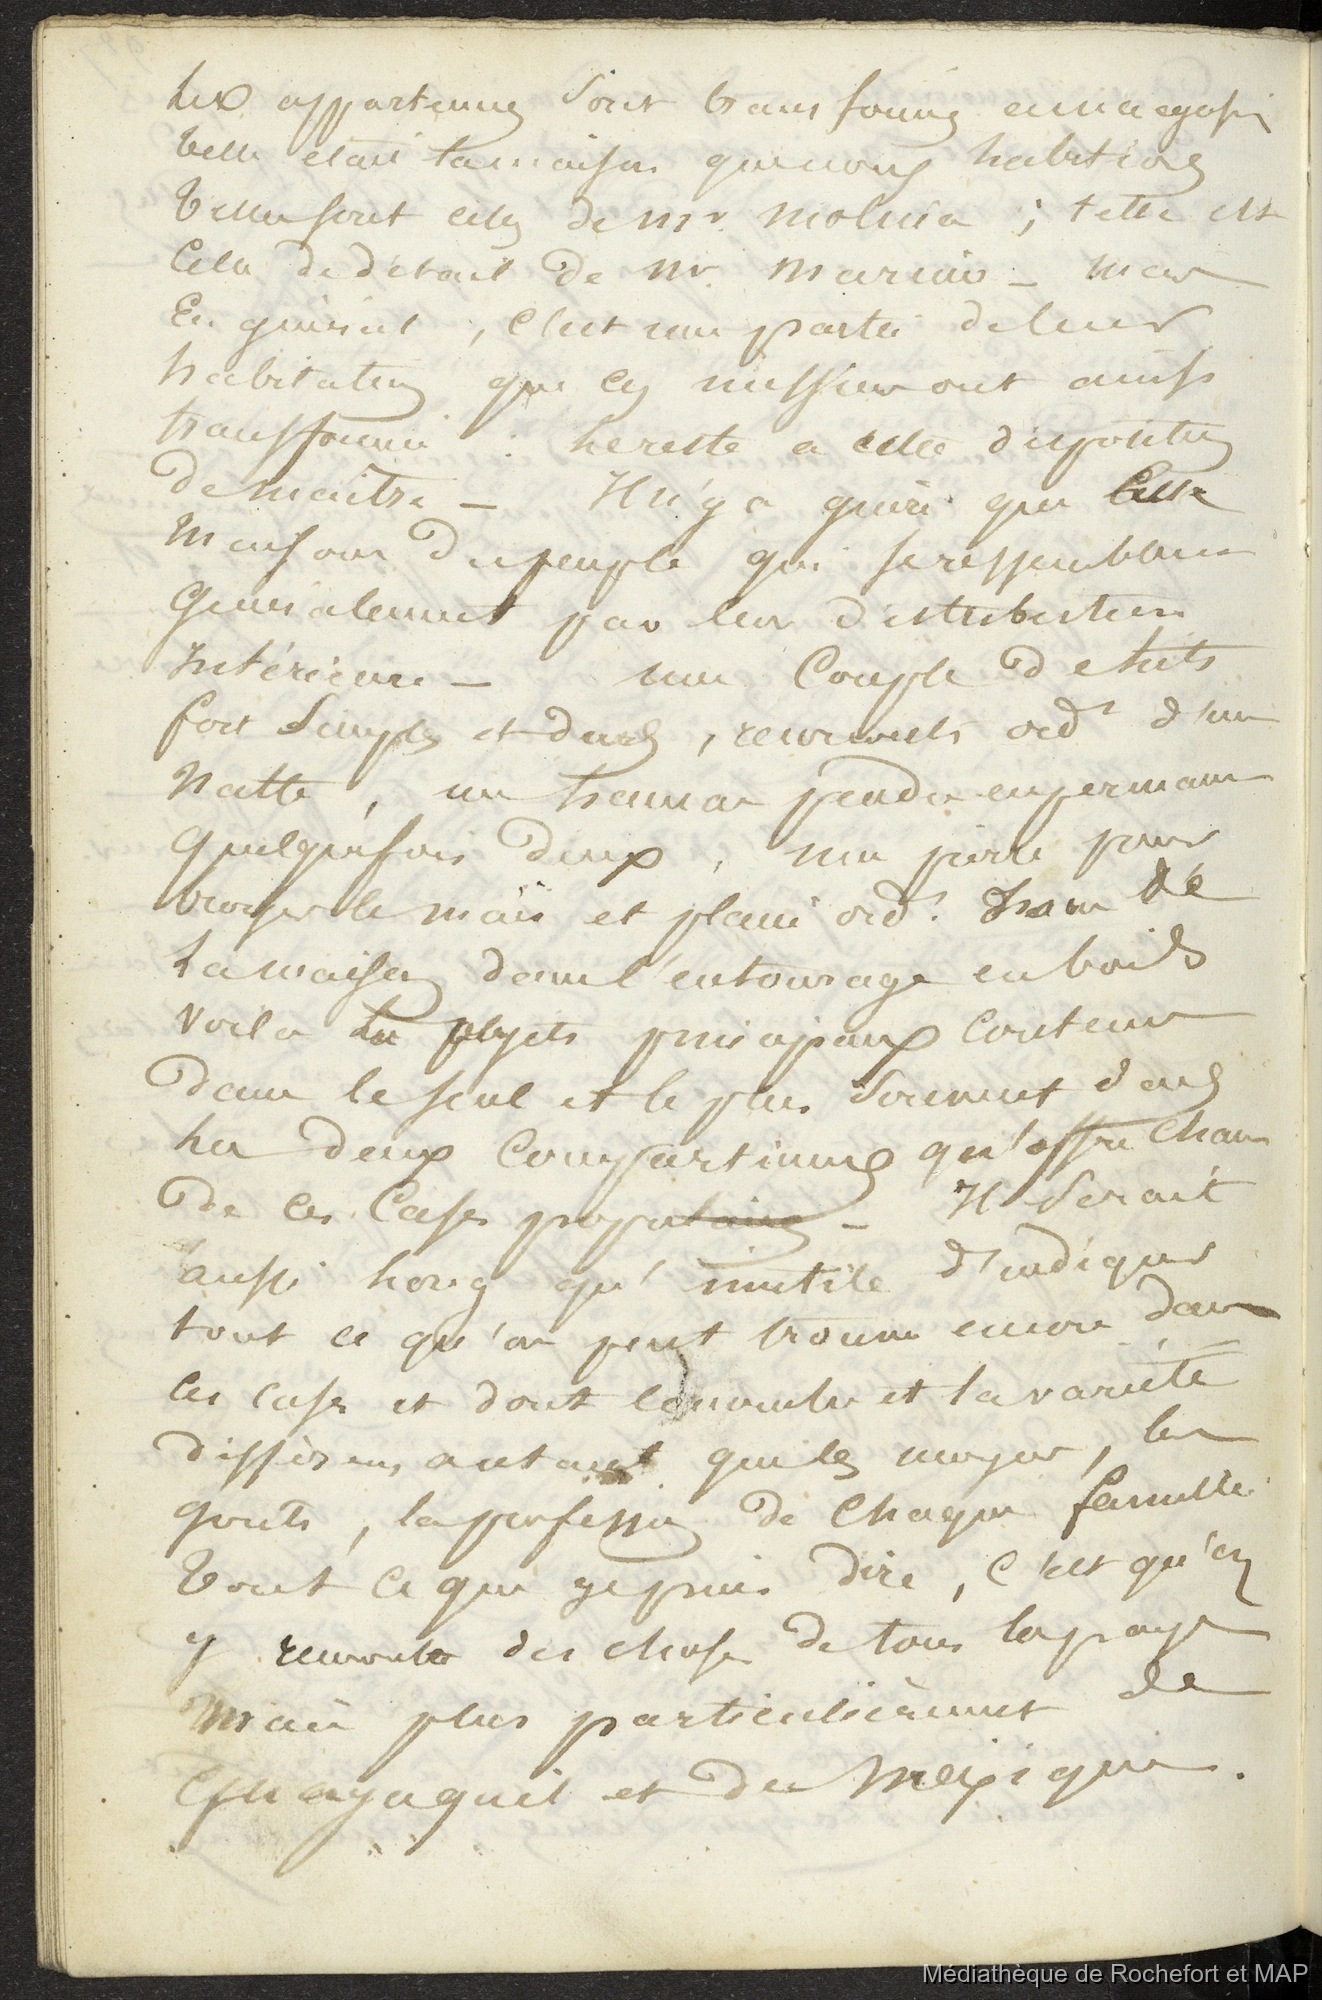 Les appartemens sont transformés en magasin
Telle était la maison que nous habitions
Telles sont celles de Mr. Molina ; telle est
Celle de détail de Mr. Marin – mais
En général, c'est une partie de leur
habitation que ces messieurs ont ainsi
transformée : le reste a cette disposition
De maitre – Il n'y a guère que les
Maisons du peuple qui se ressemblent
Généralement par leur distribution
Intérieure – un Couple de lits
fort simples et durs, recouverts ord.t d'une
Natte, un hamac pendu en permanence
quelquefois deux, une pierre pour
broyer le maïs et placée ord.t dans
La maison dans l'entourage en bois
Voilà les objets principaux contenus
Dans le seul et le plus souvent dans
les deux compartimens qu'offre chacune
De ces cases populaires – Il serait
aussi long qu'inutile d'indiquer
tout ce qu'on peut trouver encore dans
ces cases et dont le nombre et la variété
diffèrent autant que les moyens, les
gouts, la profession de chaque famille
Tout ce que je puis dire, c'est qu'on
y rencontre des choses de tous les pays
Mais plus particulièrement de
Guayaquil et du Mexique.
Médiathèque de Rochefort et MAP